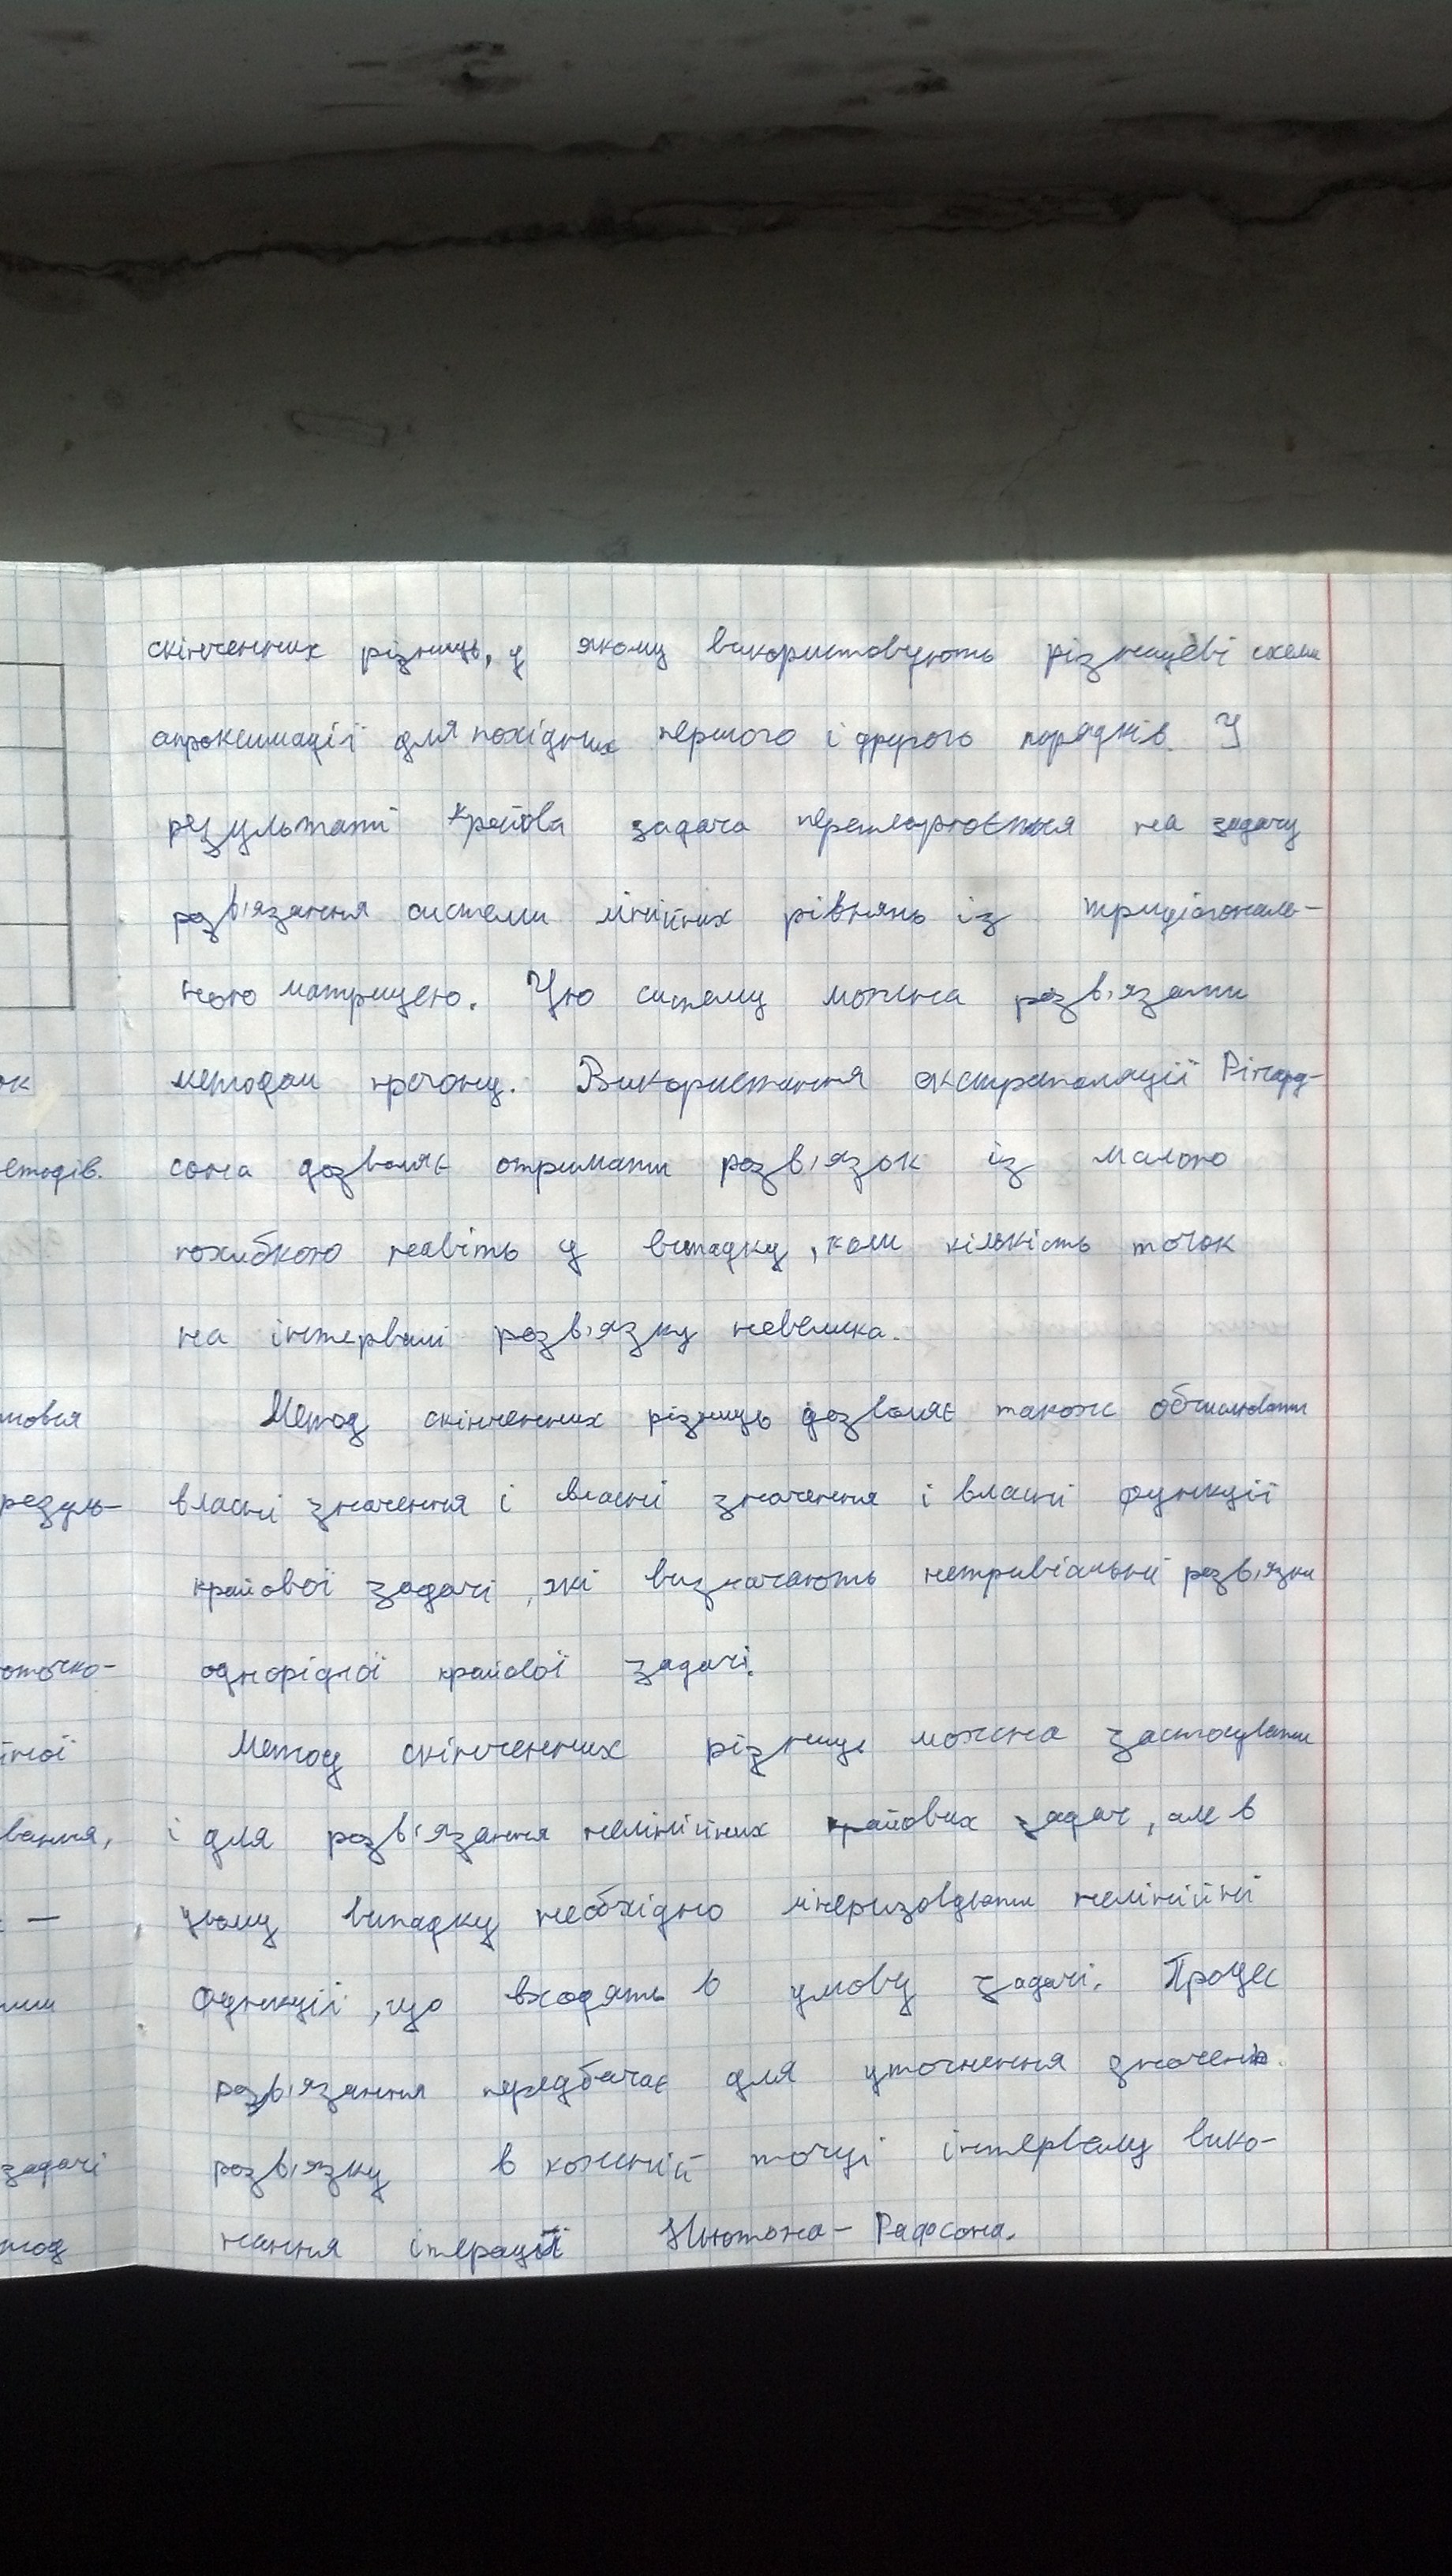 скінченних різниць, у якому використовують різницеві схеми
апроксимації для похідних першого і другого порядків. У
результаті крайова задача перетворюється на задачу
розв'язання системи лінійних рівнянь із тридіагональ-
ною матрицею. Цю систему можна розв'язати
методом прогону. Використання екстраполяції Річард-
етодів. сона дозволяє отримати розв'язок із малою
похибкою навіть у випадку, коли кількість точок
на інтервалі розв'язку невелика.
Метод скінченних різниць дозволяє також обчислювати
резуль- власні значення і власні значення і власні функції
крайової задачі, які визначають нетривіальні розв'язки
оточко- однорідної крайової задачі.
Метод скінченних різниць можна застосувати
вання, і для розв'язання нелінійних крайових задач, але в
цьому випадку необхідно лінеризовдвати нелінійні
функції, що входять в умову задачі. Процес
розв'язання передбачає для уточнення значень
задачі розв'язку в кожній точці інтервалу вико-
тод нання ітерації Ньютона - Рафсона.